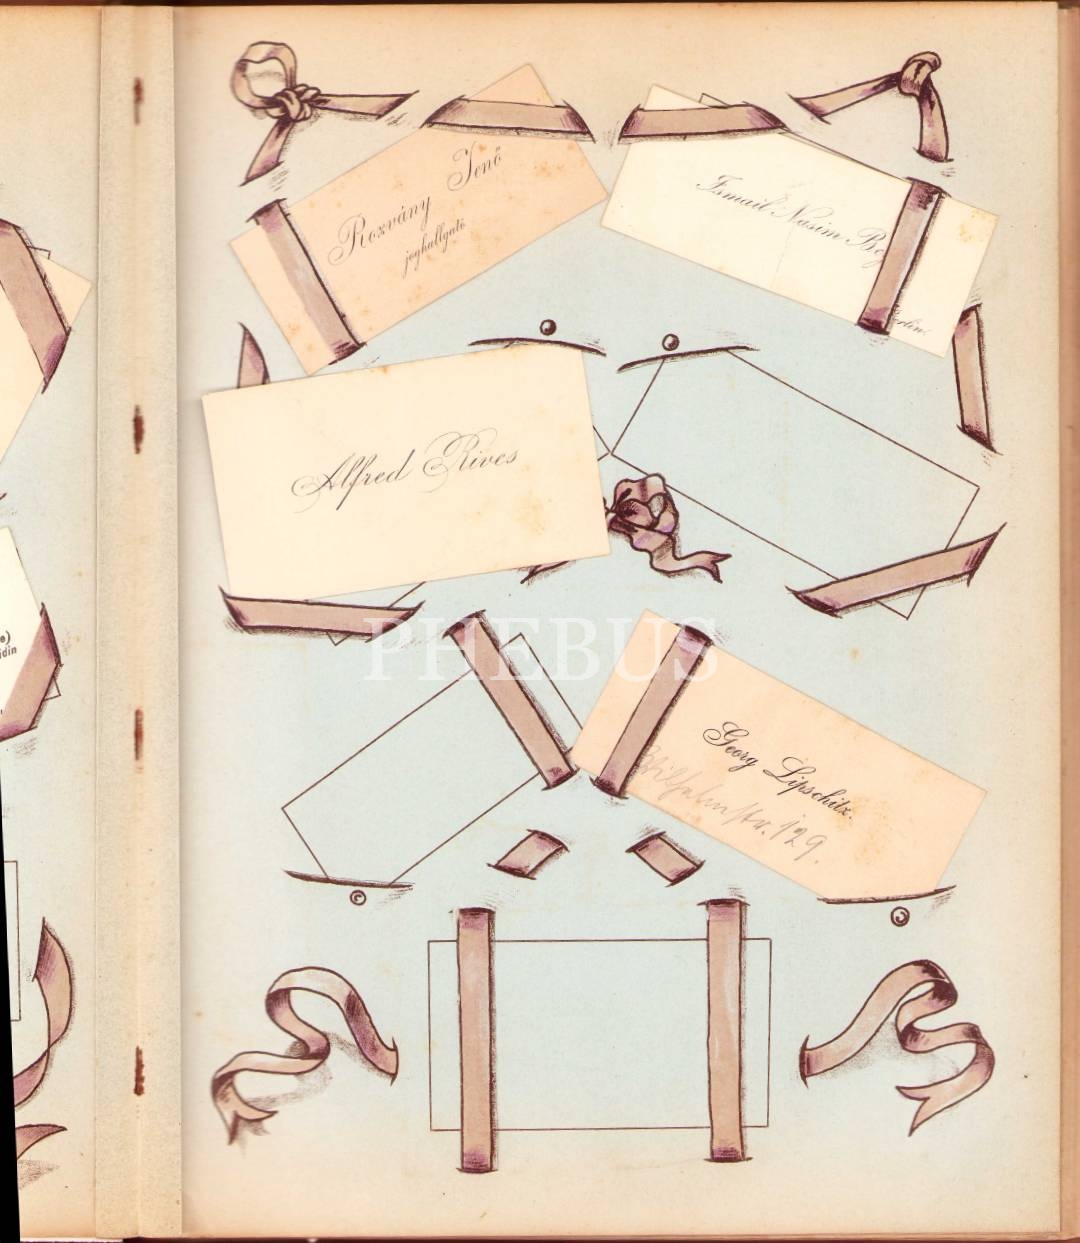 Rozvány Jenő
joghallgató
Ismail Nasim Be
Alfred Rives
PHEBUS
Georg Lipschitz.
Wilhelmstr. 129.
idin